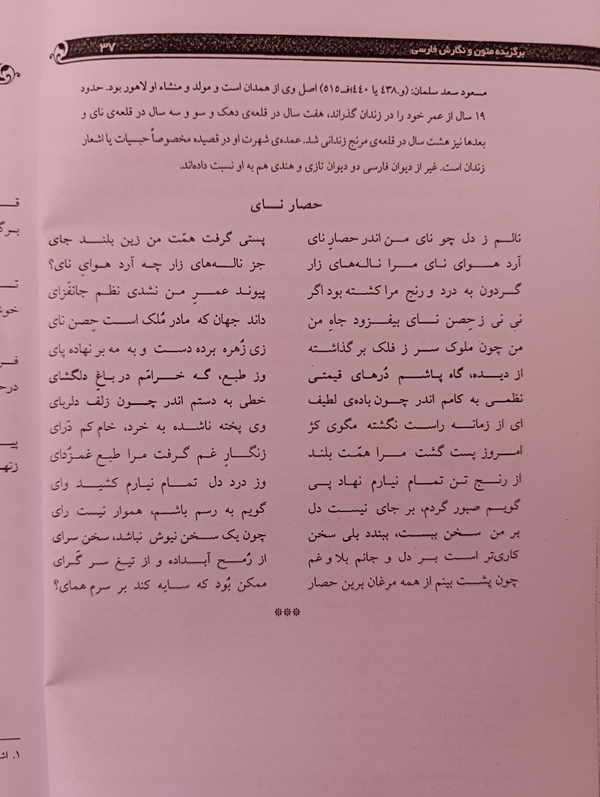 برگزیده‌ی متون و نگارش فارسی ۳۷
مسعود سعد سلمان: (و.۴۳۸ یا ۴۴۰؛ف۵۱۵) اصل وی از همدان است و مولد و منشاء او لاهور بود. حدود
۱۹ سال از عمر خود را در زندان گذراند، هفت سال در قلعه‌ی دهک و سو و سه سال در قلعه‌ی نای و
بعدها نیز هشت سال در قلعه‌ی مرنج زندانی شد. عمده‌ی شهرت او در قصیده مخصوصاً حبسیات یا اشعار
زندان است. غیر از دیوان فارسی دو دیوان تازی و هندی هم به او نسبت داده‌اند.
حصار نـــای
نالم ز دل چو نای من اندر حصارِ نای پستی گرفت همّت من زین بلند جای
آرد هوای نای مرا ناله‌های زار جز ناله‌های زار چه آرد هوایِ نای؟
گردون به درد و رنج مرا کشته بود اگر پیوند عمرِ من نشدی نظم جانفَزای
نی نی ز حِصن نای بیفزود جاهِ من داند جهان که مادر مُلک است حِصن نای
من چون ملوک سر ز فلک بر گذاشته زی زُهره برده دست و به مه بر نهاده پای
از دیده، گاه پاشم دُرهای قیمتی وز طبع، گه خرامَم در باغِ دلگشای
نظمی به کامم اندر چون باده‌ی لطیف خطی به دستم اندر چون زلف دلربای
ای از زمانه راست نگشته مگوی کژ وی پخته ناشده به خرد، خام کم دَرای
امروز پست گشت مرا همّت بلند زنگارِ غم گرفت مرا طبع غمزُدای
از رنج تن تمام نیارم نهاد پی وز درد دل تمام نیارم کشید وای
گویم صبور گردم، بر جای نیست دل گویم به رسم باشم، هموار نیست رای
بر من سخن ببست، ببندد بلی سخن چون یک سخن نیوش نباشد، سخن سرای
کاری‌تر است بر دل و جانم بلا و غم از رُمح آبداده و از تیغ سر گَرای
چون پشت بینم از همه مرغان برین حصار ممکن بُود که سایه کند بر سرم همای؟
***